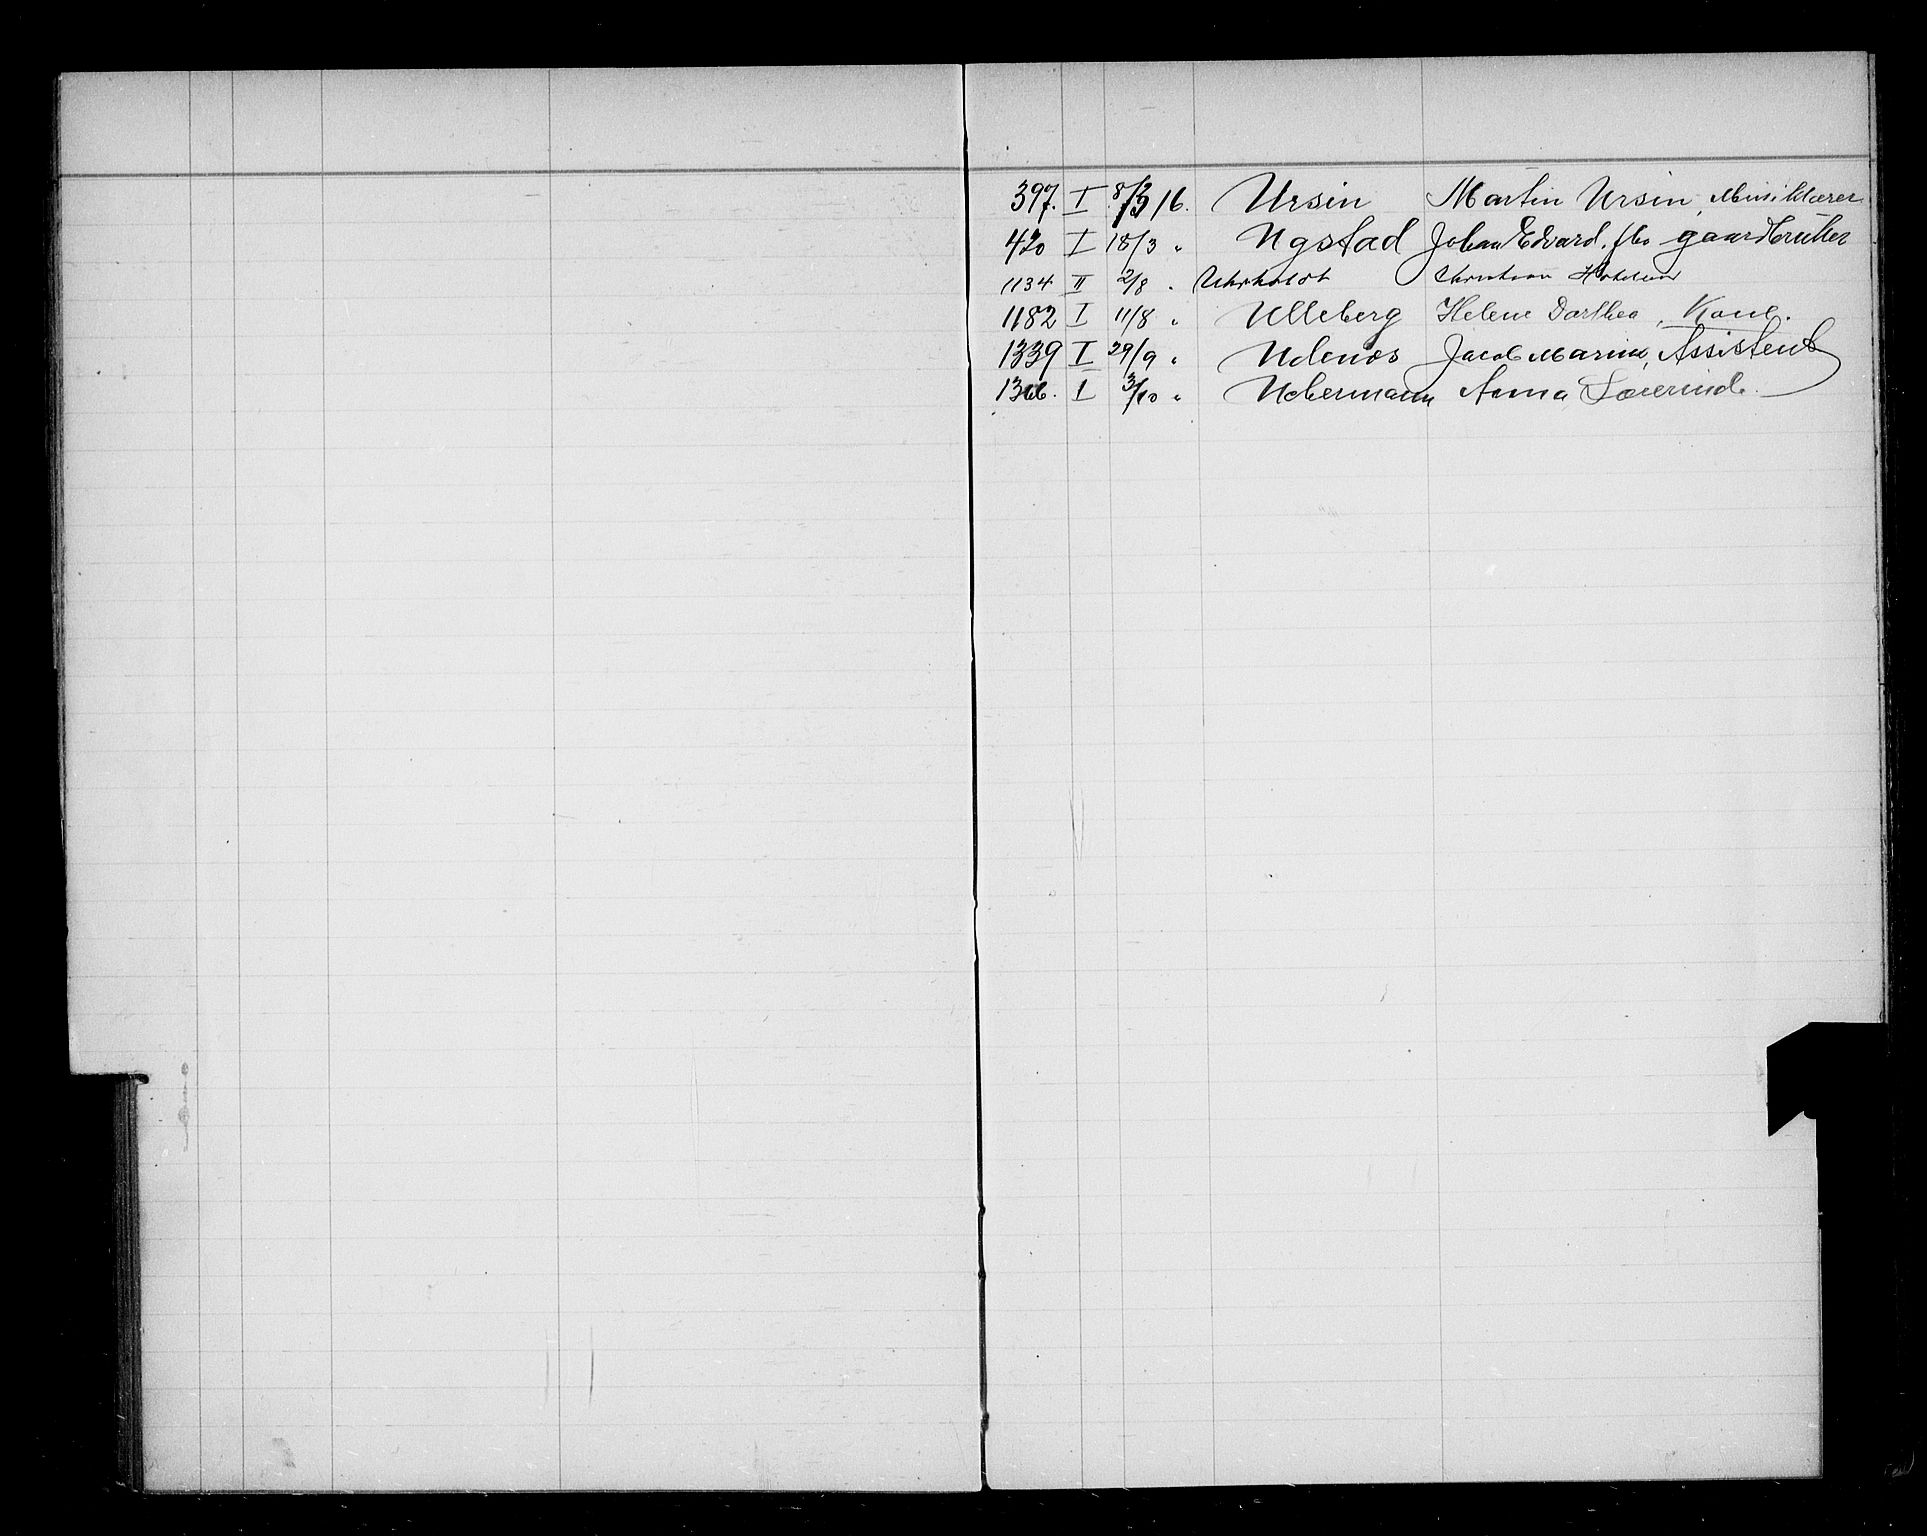 397. I 8/3 16. Ursin Martin Ursin, Musiklærer
420 I 18/3 " Ugstad Johan Edvard, fhv gaardbruker
1134 II 2/8 " Uhrholdt Christian
1182 I 11/8 " Ulleberg Helene Dorthea, Kone.
1339 I 29/9 " Udnæs Jacob Marius, Assistent
I 3/10 " Uchermann Anna Lærerinde.